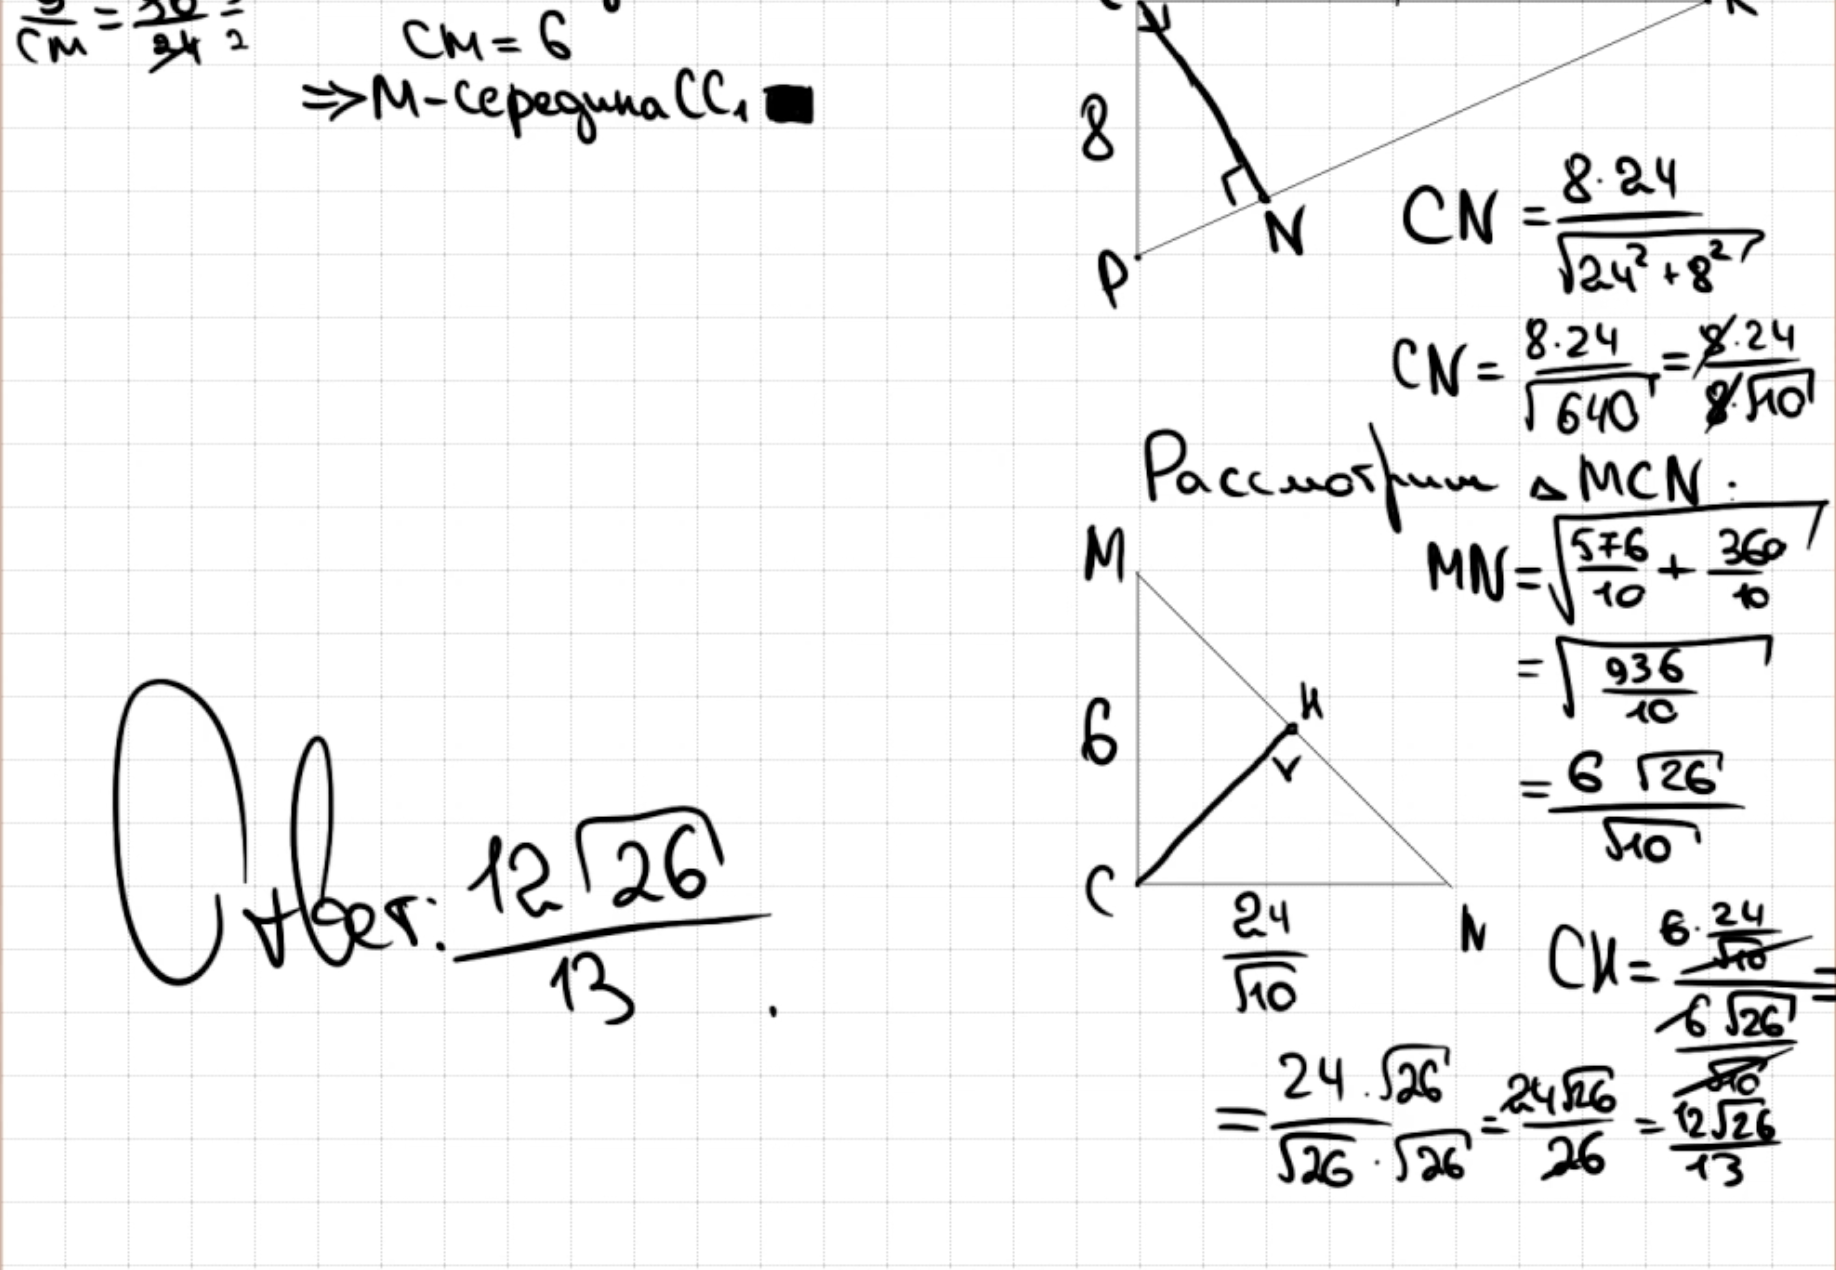 CM = 24 2
CM = 6
⇒ M - середина CC₁ ■
8
N
P
CN = 8·24 / √(24² + 8²)
CN = 8·24 / √640 = 8·24 / 8·√10
Рассмотрим △ MCN:
M
MN = √(576/10 + 360/10)
= √(936/10)
H
6
= 6 √26 / √10
C
24/√10
N
CH = 6·24/√10 / 6√26/√10 =
= 24·√26 / √26·√26 = 24√26 / 26 = 12√26 / 13
Ответ: 12√26 / 13.